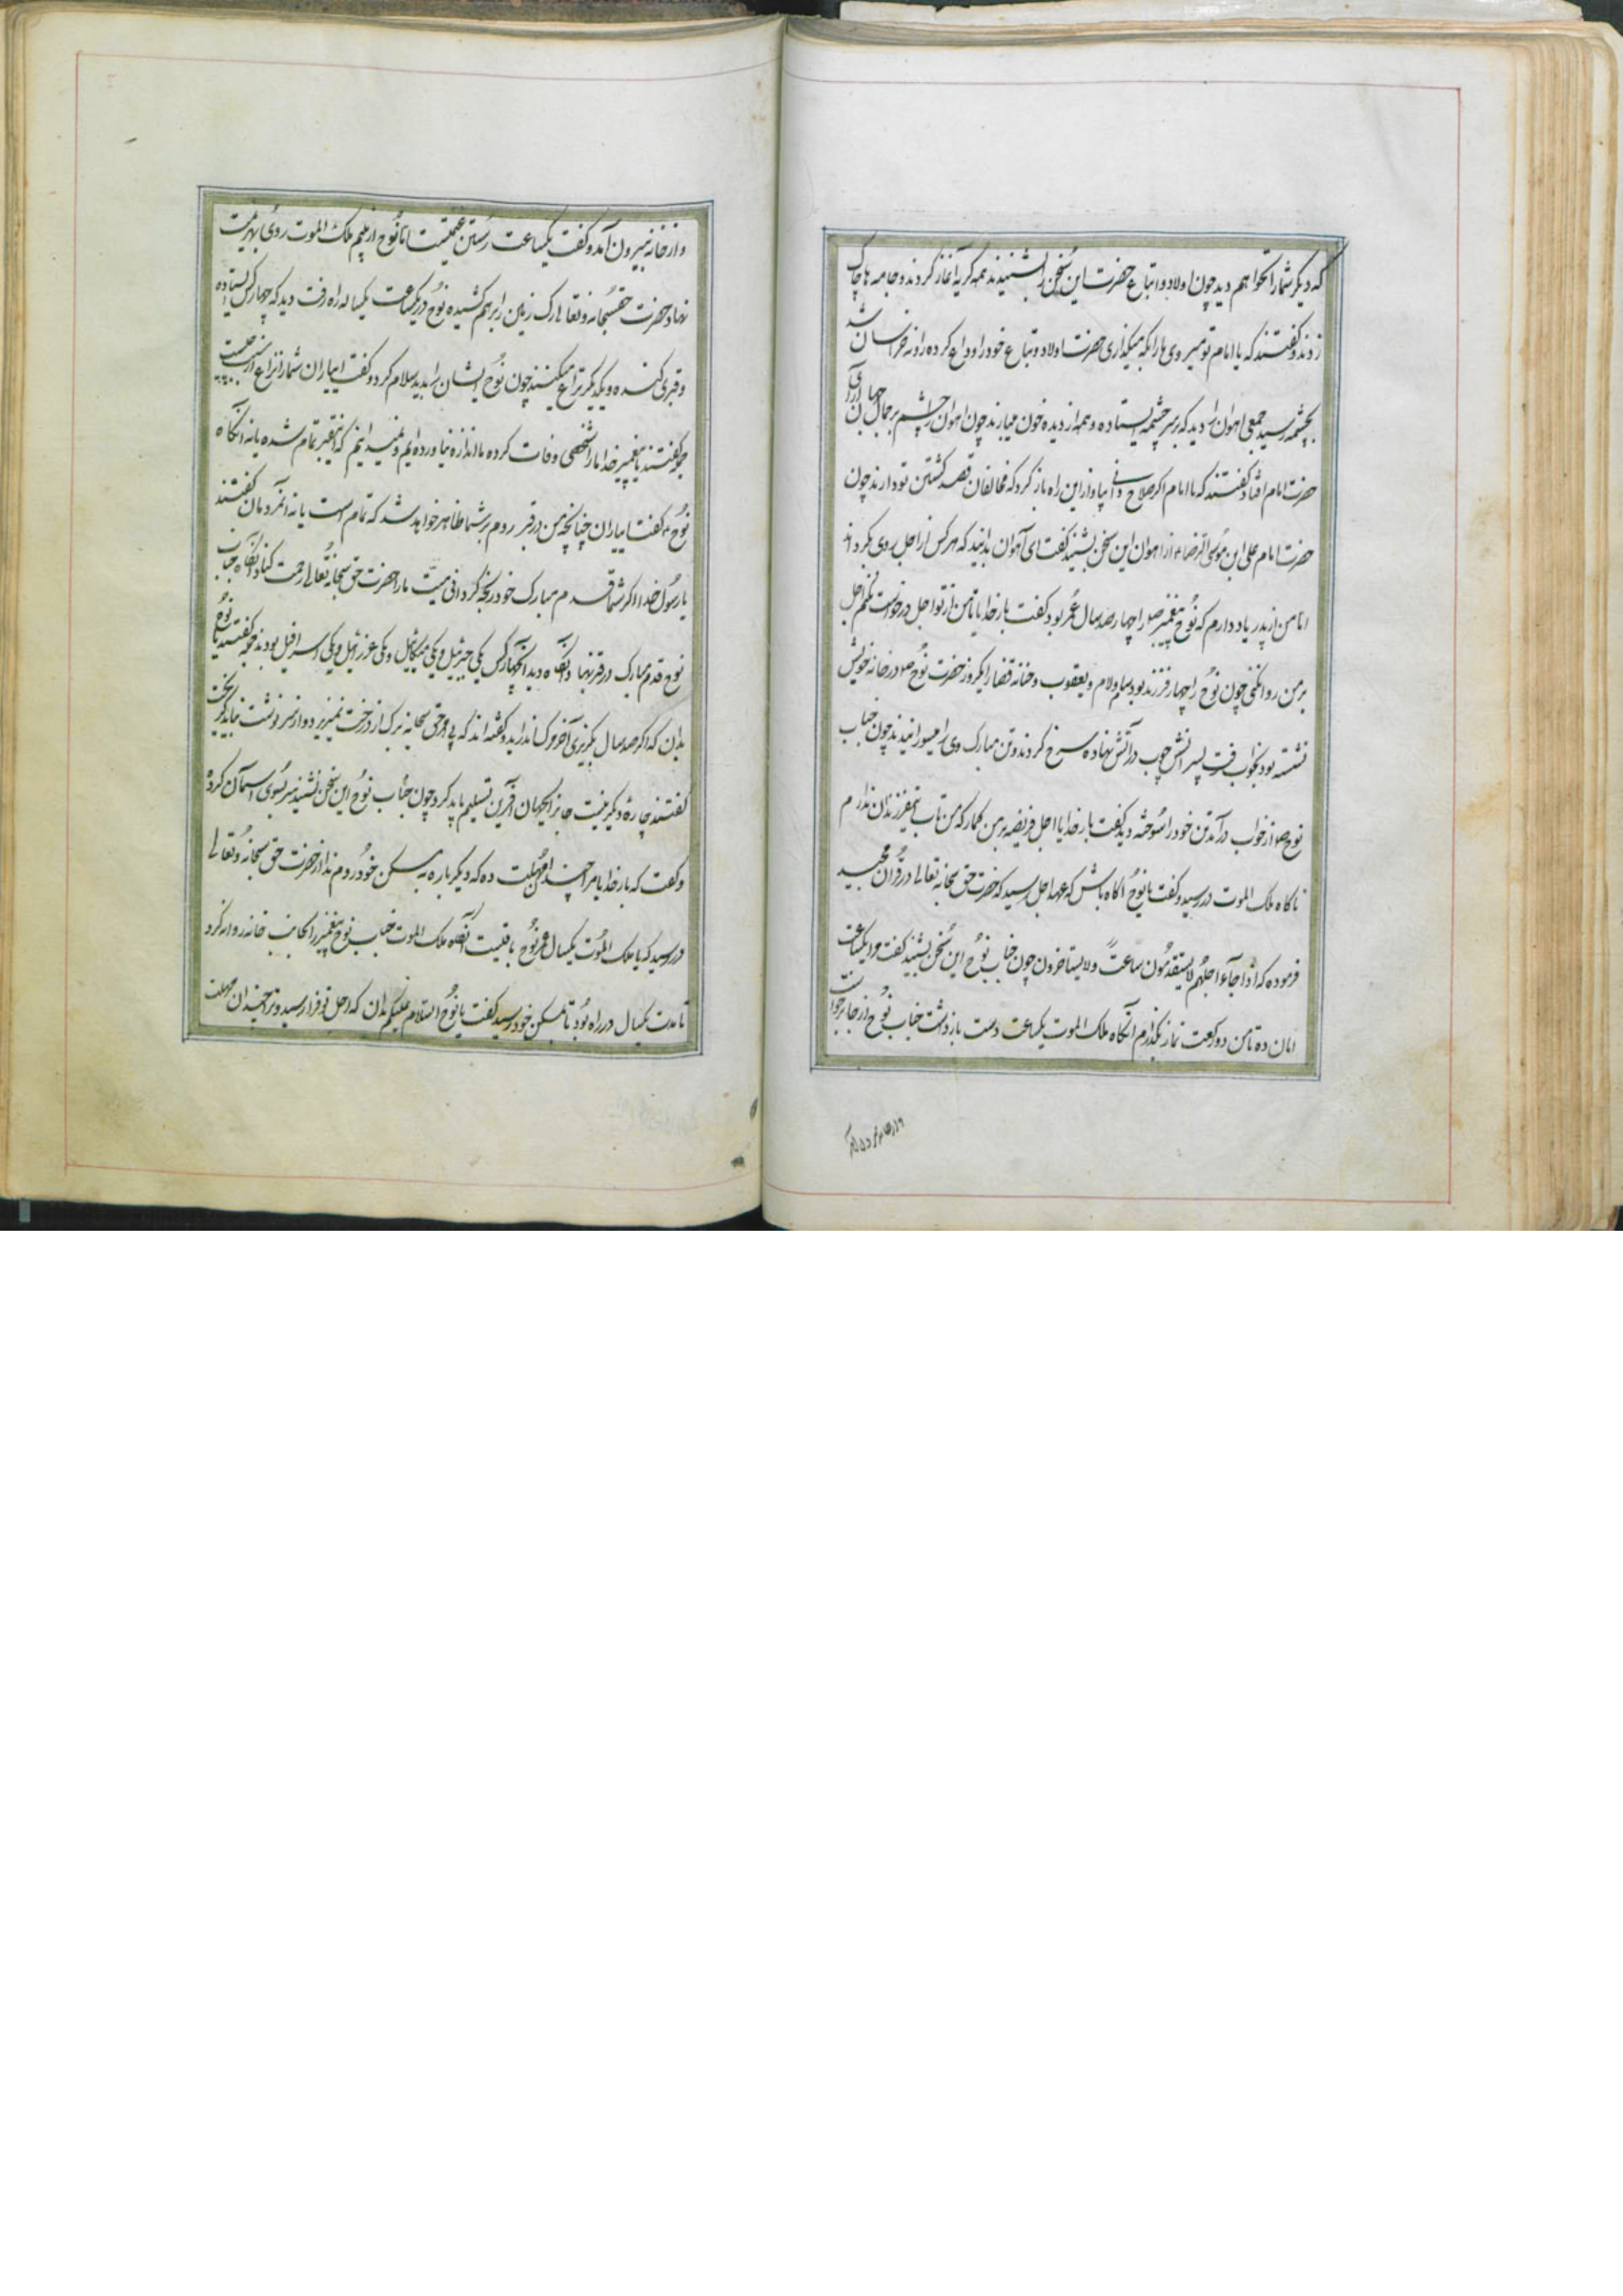 که دیکر شما را نخواهم دید چون اولاد و اتباع حضرت این سخن را بشنیدند همه کریه آغاز کردند و جامه ها چاک
زدند و کفتند که یا امام تو میروی ما را بکه میکذاری حضرت اولاد و تباع خود را وداع کرده روانه خراسان شد
بچشمه رسید جمعی اهوان را دید که بر سر چشمه ایستاده و همه از دیده خون میبارند چون اهوان را چشم بر جمال جهان آرای
حضرت امام افتاد کفتند که یا امام اکر صلاح دانی بیا و از این راه باز کرد که مخالفان قصد کشتن تو دارند چون
حضرت امام علی ابن موسی الرضا از اهوان این سخن بشنید کفت ای آهوان بدانید که هر کس از اجل روی بکرداند
اما من از پدر یاد دارم که نوح پیغمبر را چهار صد سال عمر بود کفت بار خدایا تا من از تو اجل درخواست نکنم اجل
بر من روا نکنی چون نوح را چهار فرزند بود سام و لام و یعقوب و خنانه قضا را یکروز حضرت نوح در خانه خویش
نشسته بود بخواب رفت پسرانش چوب در آتش نهاده سرخ کردند و تن مبارک وی را میسوزانیدند چون جناب
نوح از خواب درآمد تن خود را سوخته دید کفت بار خدایا اجل فریضه بر من کمار که من تاب نفیر فرزندان ندارم
ناکاه ملک الموت در رسید و کفت یا نوح اکاه باش که عهد اجل رسید که حضرت حق سبحانه تعالی در قرآن مجید
فرموده که اذا جآء اجلهم لا یستقدمون ساعت ولا یستاخرون چون جناب نوح این سخن بشنید کفت مرا یکساعت
امان ده تا من دو رکعت نماز بکذارم آنکاه ملک الموت یکساعت دست بازداشت جناب نوح از جا برخواست
و از خانه بیرون آمد و کفت یکساعت رستن غنیمتست اما نوح از بیم ملک الموت روی بهزیمت
نهاد حضرت حق سبحانه و تعالی رک زمین را بر هم کشیده نوح در یکساعت یکساله راه رفت دید که چهار کس ایستاده
و قبری کنده و با یکدیکر نزاع میکنند چون نوح ایشان را بدید سلام کرد و کفت ای یاران شما را نزاع از چیست
همه کفتند یا پیغمبر خدا ما را شخصی وفات کرده ما اندازه نیاورده ایم و نمیدانیم که این قبر تمام شده یا نه آنکاه
نوح کفت ای یاران چنانچه من در قبر روم بر شما ظاهر خواهد شد که تمام است یا نه آنمردمان کفتند
یا رسول خدا اکر شما قدم مبارک خود رنجه کردانی میت ما را حضرت حق سبحانه تعالی رحمت کناد آنکاه جناب
نوح قدم مبارک در قبر نهاد آنکاه دید آنچهار کس یکی جبرئیل و یکی میکائیل و یکی عزرائیل و یکی اسرافیل بودند همه کفتند یا نوح
بدان که اکر صد سال بکریزی آخر مرک امان ندارد و کفته اند که بی امر حق سبحانه برک از درخت نمیریزد و از سرنوشت نباید کریخت
کفتند چاره دیکر نیست جانرا بجهان آفرین تسلیم باید کرد چون جناب نوح این سخن بشنید سر بسوی اسمان کرده
و کفت که بار خدایا مرا چندان مهلت ده که دیکر باره به مسکن خود روم ندا از حضرت حق سبحانه و تعالی
در رسید که یا ملک الموت یکسال عمر نوح باقیست آنکاه ملک الموت جناب نوح پیغمبر را بجانب خانه روانه کرد
تا مدت یکسال در راه بود تا بمسکن خود رسید کفت یا نوح السلام علیکم بدان که اجل تو فرا رسید و ترا چندان مهلت